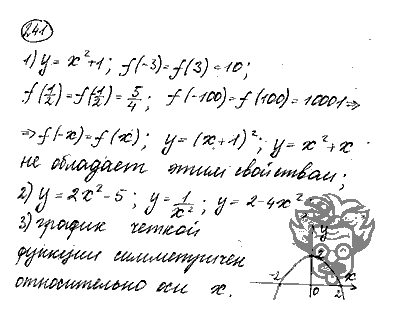 241
1) y = x² + 1; f(-3) = f(3) = 10;
f(1/2) = f(1/2) = 5/4; f(-100) = f(100) = 10001 ⇒
⇒ f(-x) = f(x); y = (x+1)²; y = x² + x
не обладает этим свойствам;
2) y = 2x² - 5; y = 1/x²; y = 2 - 4x²
3) график четкой
функции симметричен
относительно оси x.
y
2
-2 0 2 x